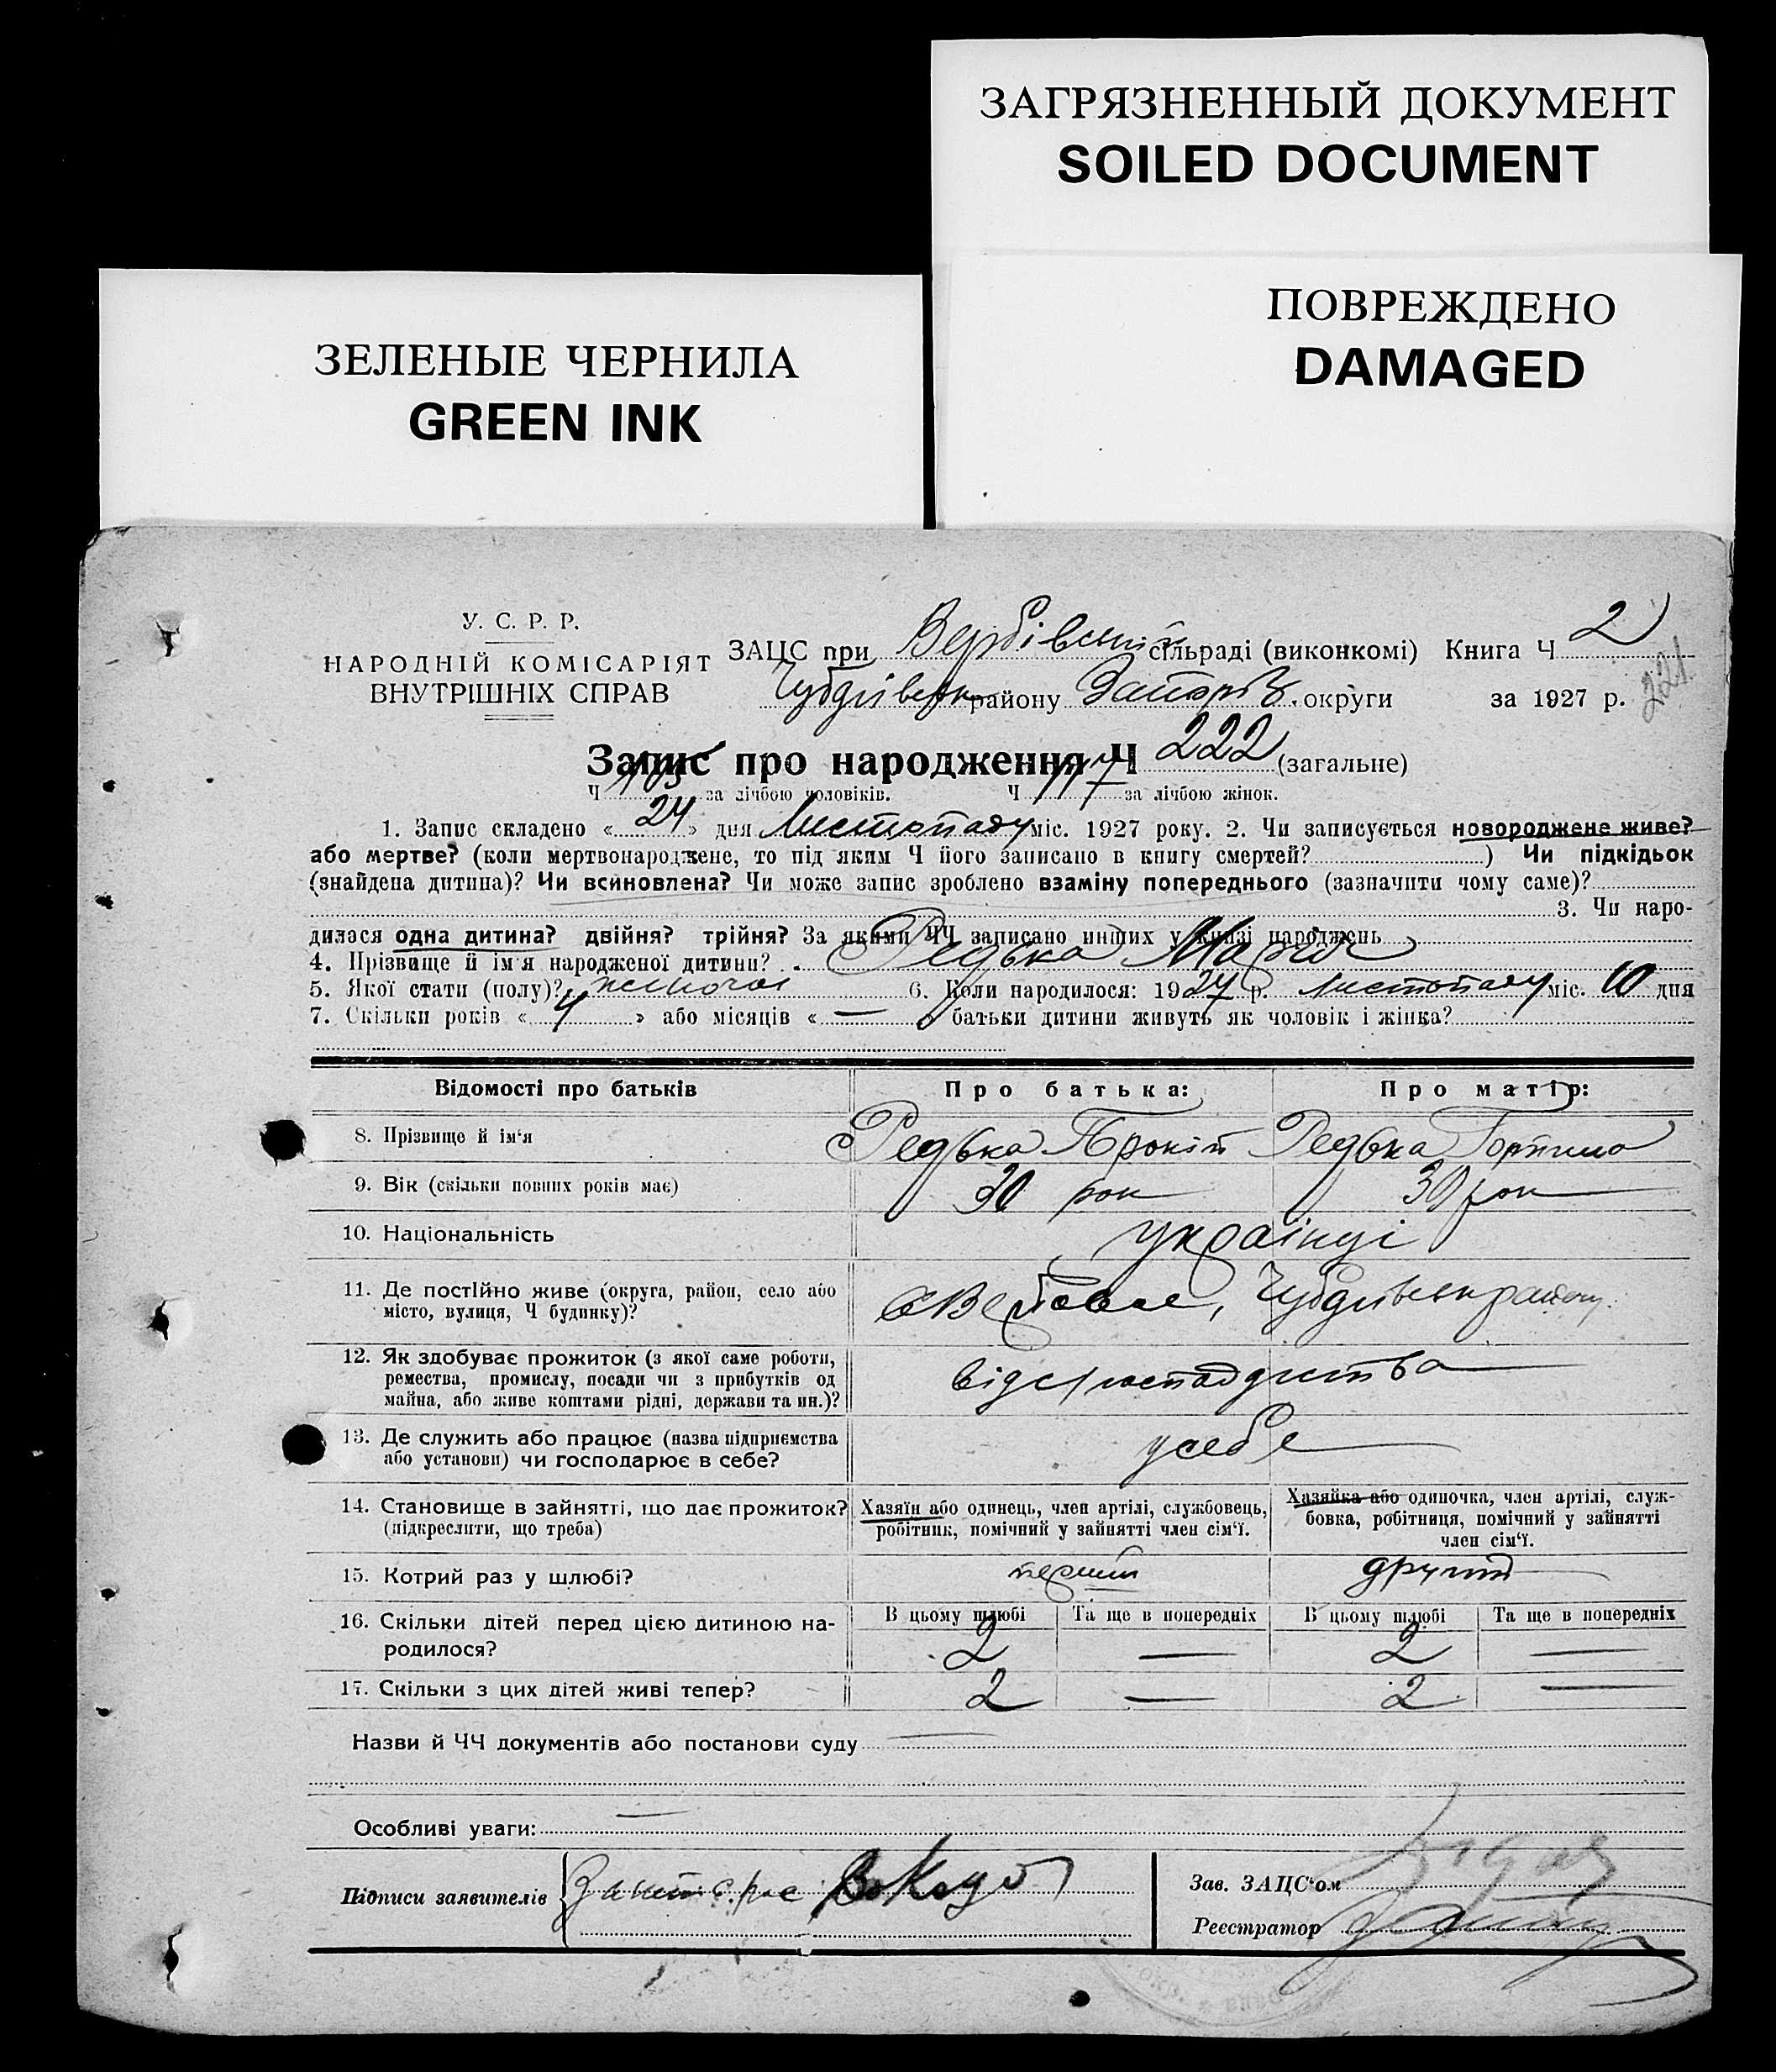 ЗАГРЯЗНЕННЫЙ ДОКУМЕНТ
SOILED DOCUMENT
ПОВРЕЖДЕНО
DAMAGED
ЗЕЛЕНЫЕ ЧЕРНИЛА
GREEN INK
У. С. Р. Р.
НАРОДНІЙ КОМІСАРІЯТ
ВНУТРІШНІХ СПРАВ
ЗАЦС при Вербівській сільраді (виконкомі) Книга Ч 2
району округи за 1927 р.
221
Запис про народження Ч 222 (загальне)
Ч за лічбою чоловіків. Ч 117 за лічбою жінок.
1. Запис складено « 24 » дня Листопаду міс. 1927 року. 2. Чи записується новороджене живе?
або мертве? (коли мертвонароджене, то під яким Ч його записано в книгу смертей? ) Чи підкідьок
(знайдена дитина)? Чи всиновлена? Чи може запис зроблено взаміну попереднього (зазначити чому саме)?
3. Чи наро-
дилася одна дитина? двійня? трійня? За якими ЧЧ записано инших у книзі народжень
4. Прізвище й ім'я народженої дитини? Редька Марія
5. Якої стати (полу)? жіночої 6. Коли народилося: 1927 р. Листопаду міс. 10 дня
7. Скільки років « 4 » або місяців « — » батьки дитини живуть як чоловік і жінка?
Відомості про батьків
Про батька:
Про матір:
8. Прізвище й ім'я Редька Прокіп Редька Горпина
9. Вік (скільки повних років має) 30 рок 30 рок
10. Національність українці
11. Де постійно живе (округа, район, село або
місто, вулиця, Ч будинку)?
12. Як здобуває прожиток (з якої саме роботи,
ремества, промислу, посади чи з прибутків од
майна, або живе коштами рідні, держави та ин.)?
13. Де служить або працює (назва підприємства
або установи) чи господарює в себе?
у себе
14. Становище в зайнятті, що дає прожиток?
(підкреслити, що треба)
Хазяїн або одинець, член артілі, службовець,
робітник, помічний у зайнятті член сім'ї.
Хазяйка або одиночка, член артілі, служ-
бовка, робітниця, помічний у зайнятті
член сім'ї.
15. Котрий раз у шлюбі? перший другий
16. Скільки дітей перед цією дитиною на-
родилося?
В цьому шлюбі Та ще в попередніх В цьому шлюбі Та ще в попередніх
2 — 2 —
17. Скільки з цих дітей живі тепер? 2 — 2 —
Назви й ЧЧ документів або постанови суду —
Особливі уваги: —
Підписи заявителів
Зав. ЗАЦС'ом
Реєстратор